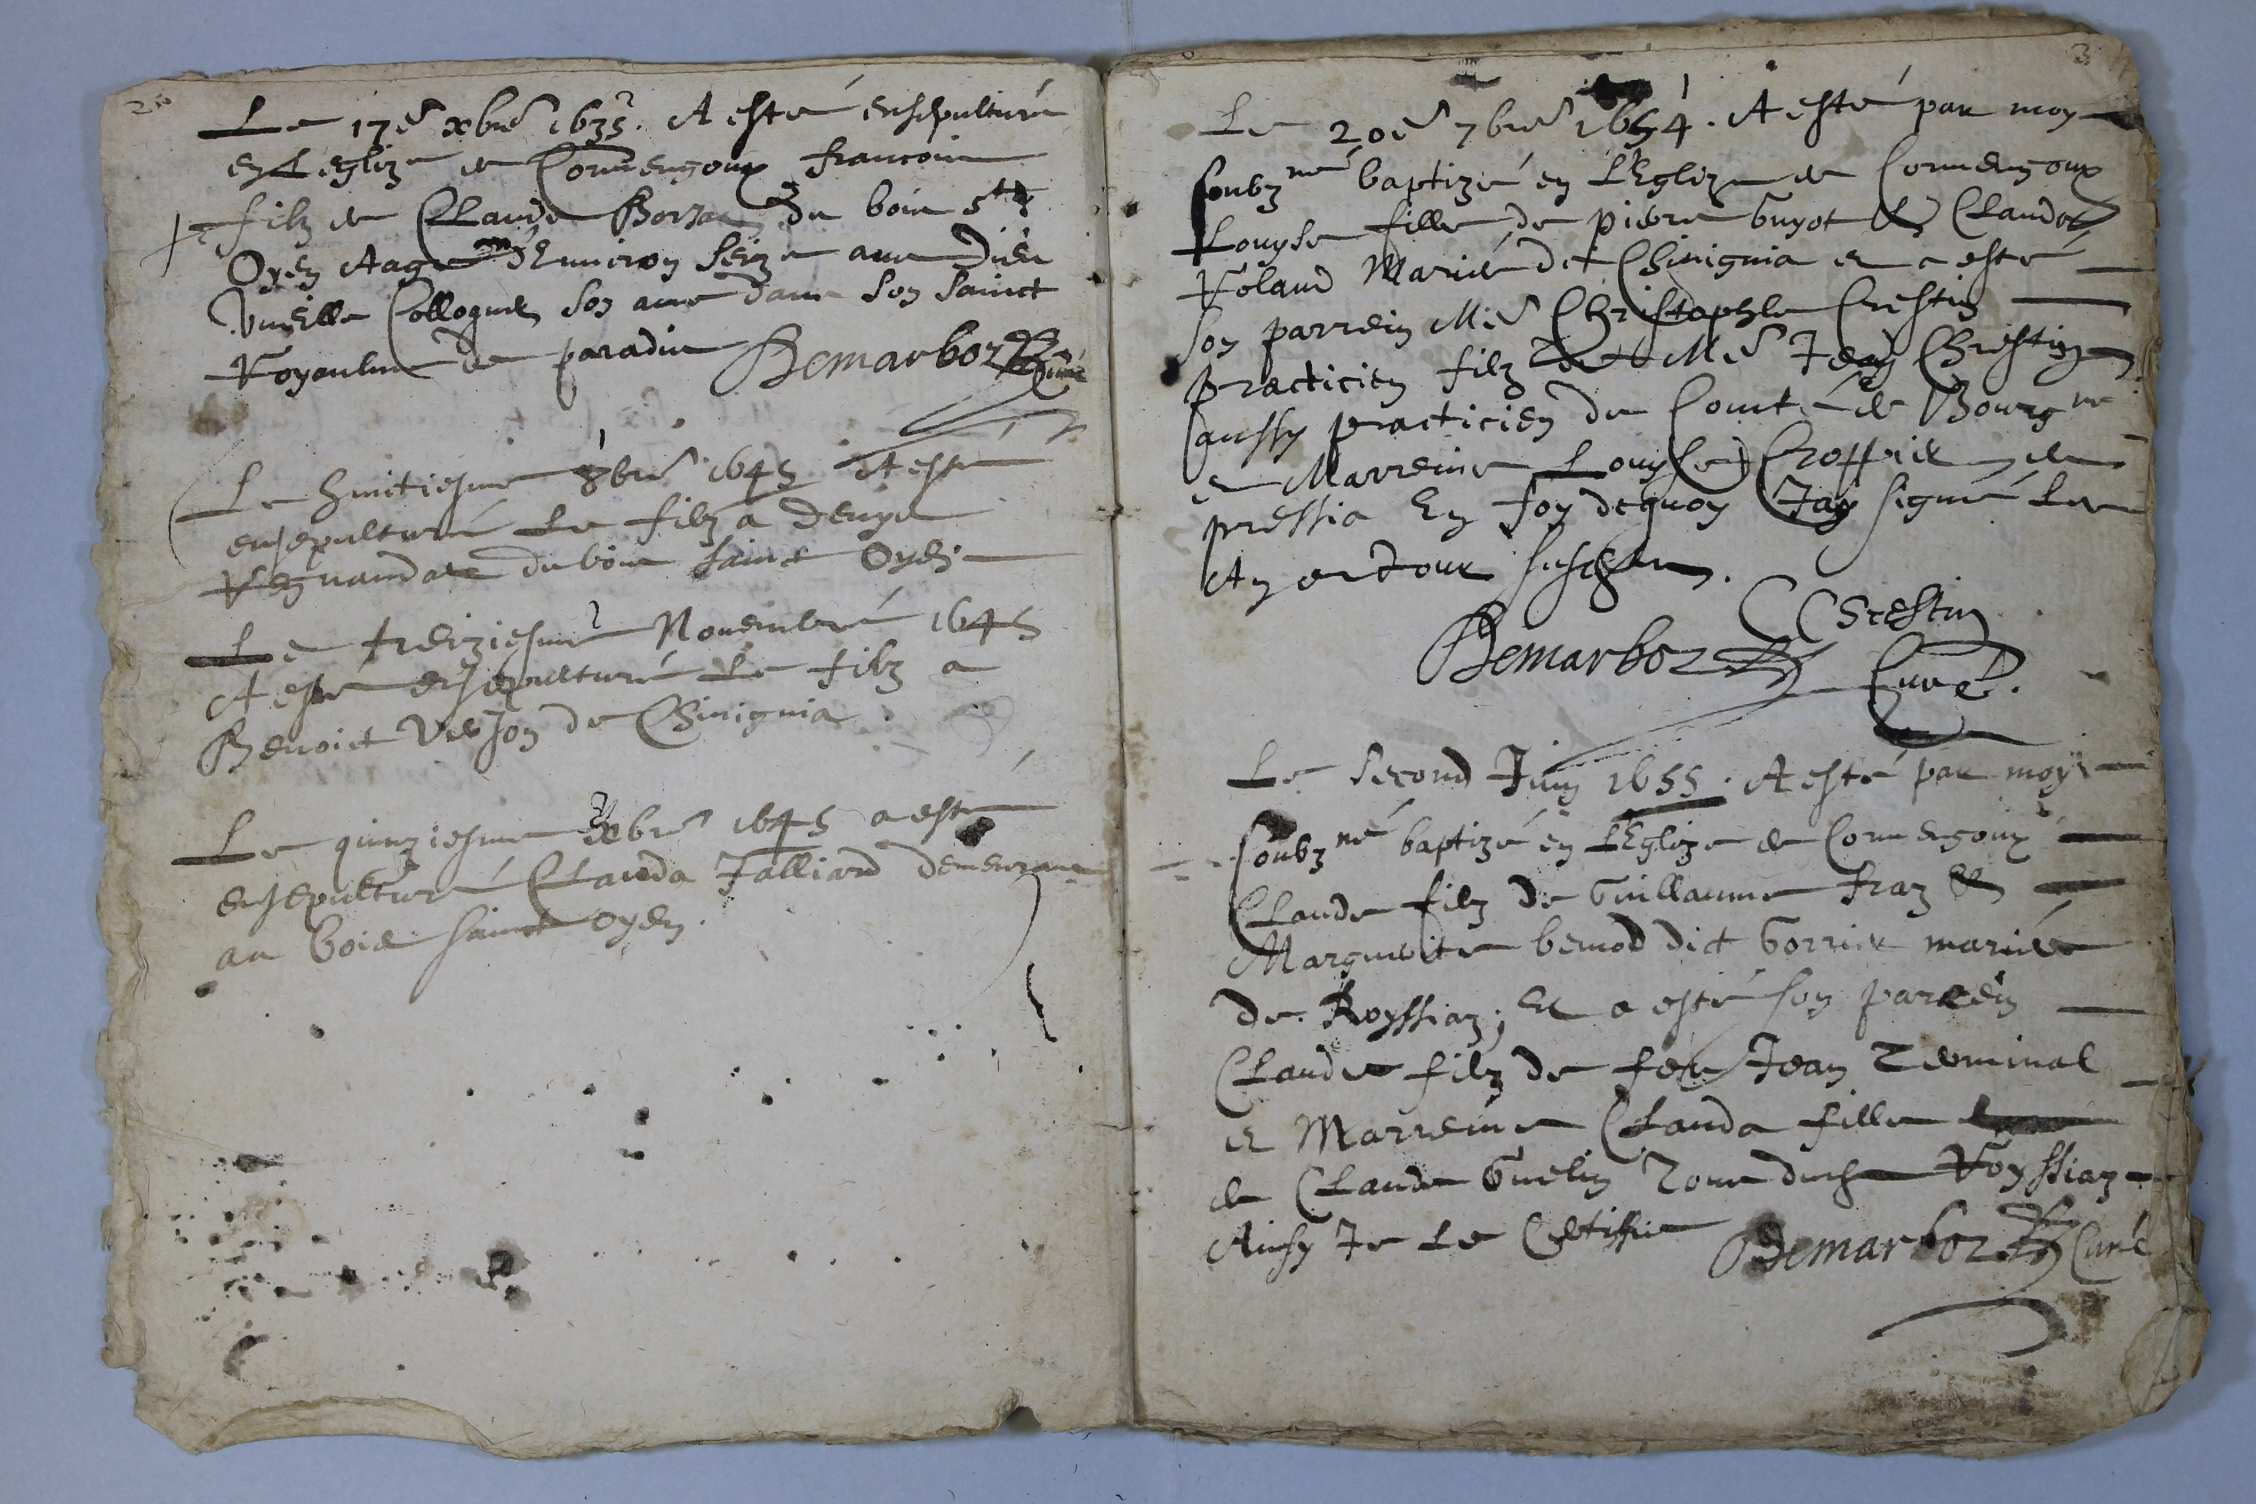 2
Le 17e xbre 1635. A esté ensepulturé
en L'eglize de Cormengoux francois
filz de Claude Borzat du bois St
Oyen Aagé d'Environ seize ans Dieu
Vueille Colloquer son ame dans son sainct
Royaulme de paradis Bemarboz Curé
Le huictiesme 8bre 1645 A esté
ensepulturé Le filz a Denys
du bois sainct Oyen
Le treiziesme Novembre 1645
A esté ensepulturé Le filz a
Benoict de Chinignia
Le quinziesme xbre 1645 a esté
ensepulturé Clauda Jalliard demeurant
au bois sainct oyen.
3
Le 20e 7bre 1654. A esté par moy
soubzné baptizé en L'Eglize de Cormengoux
Louyse fille de pierre Guyot & Clauda
Roland Mariés de Chinignia et a esté
son parrein Me Christophle Crestin
practicien filz de Me Jean Chrestin
aussy practicien du Comté de Bourgne
et Marreine Louyse de
pressia En foy dequoy Jay signé Les
An et Jour susdict.
C Crestin
Bemarboz Curé.
Le second Juin 1655. A esté par moy
soubzné baptizé en L'Eglize de Cormengoux
Claude filz de Guillaume fraz &
Marguerite bemod dict Gorrier mariés
de Royssiaz; Et a esté son parrein
Claude filz de feu Jean Terminal
et Marreine Clauda fille
de Claude Guelin Tous dudict Royssiaz
Ainsy Je Le Certiffie Bemarboz Curé